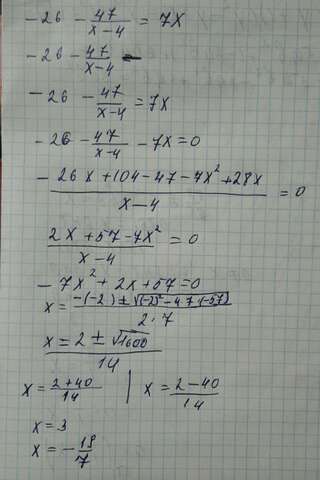 -26 - 47/(x-4) = 7x
-26 - 47/(x-4) -
-26 - 47/(x-4) = 7x
-26 - 47/(x-4) - 7x = 0
(-26x + 104 - 47 - 7x² + 28x)/(x-4) = 0
(2x + 57 - 7x²)/(x-4) = 0
-7x² + 2x + 57 = 0
x = (-(-2) ± √((-2)² - 4·7·(-57)))/(2·7)
x = (2 ± √1600)/14
x = (2+40)/14 | x = (2-40)/14
x = 3
x = -19/7